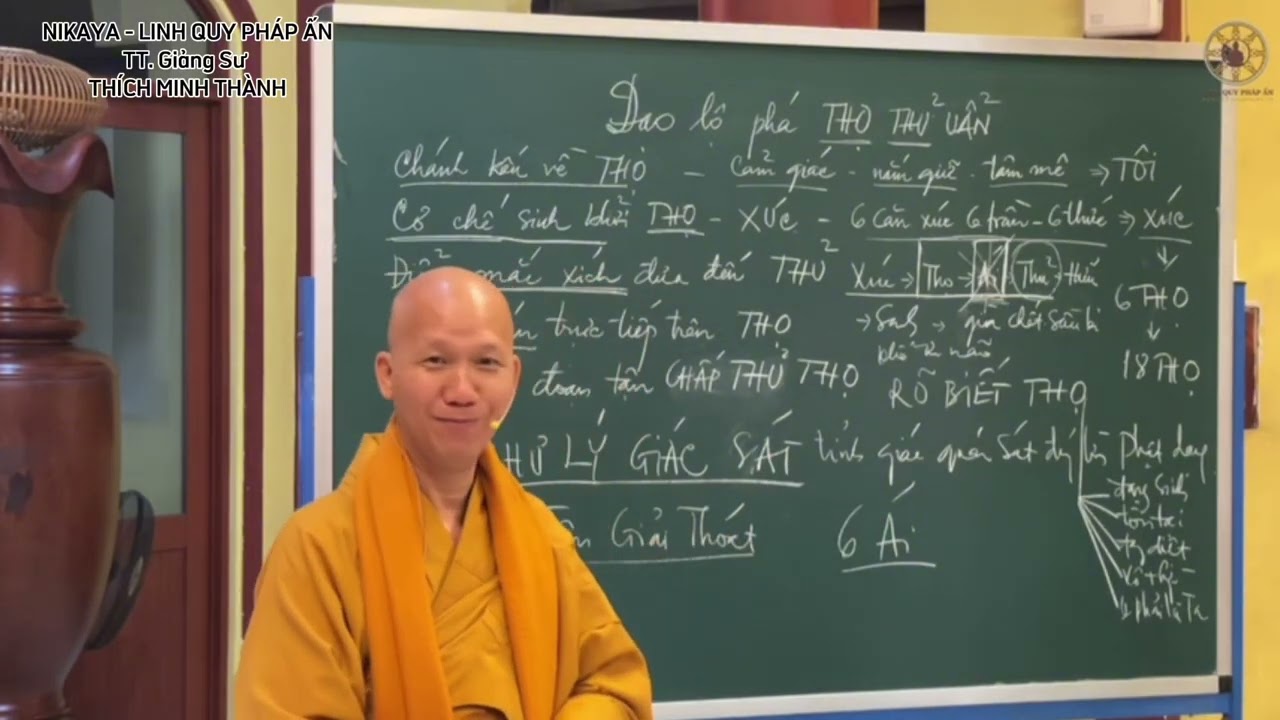 NIKAYA - LINH QUY PHÁP ẤN
TT. Giảng Sư
THÍCH MINH THÀNH
QUY PHÁP ẤN
Đạo lộ phá THỌ THỦ UẨN
Chánh kiến về THỌ - Cảm giác - nắm giữ - đam mê => TÔI
Cơ chế sinh khởi THỌ - XÚC - 6 căn xúc 6 trần - 6 thức => XÚC
mắc xích đưa đến THỦ Xúc -> Thọ -> Ái - Thủ - Hữu
6 THỌ
trực tiếp trên THỌ -> Sanh -> già chết sầu bi
khổ ưu não
18 THỌ
đoạn tận CHẤP THỦ THỌ RÕ BIẾT THỌ
LÝ GIÁC SÁT tỉnh giác quán sát
đang sinh
Giải Thoát 6 Ái
tồn tại